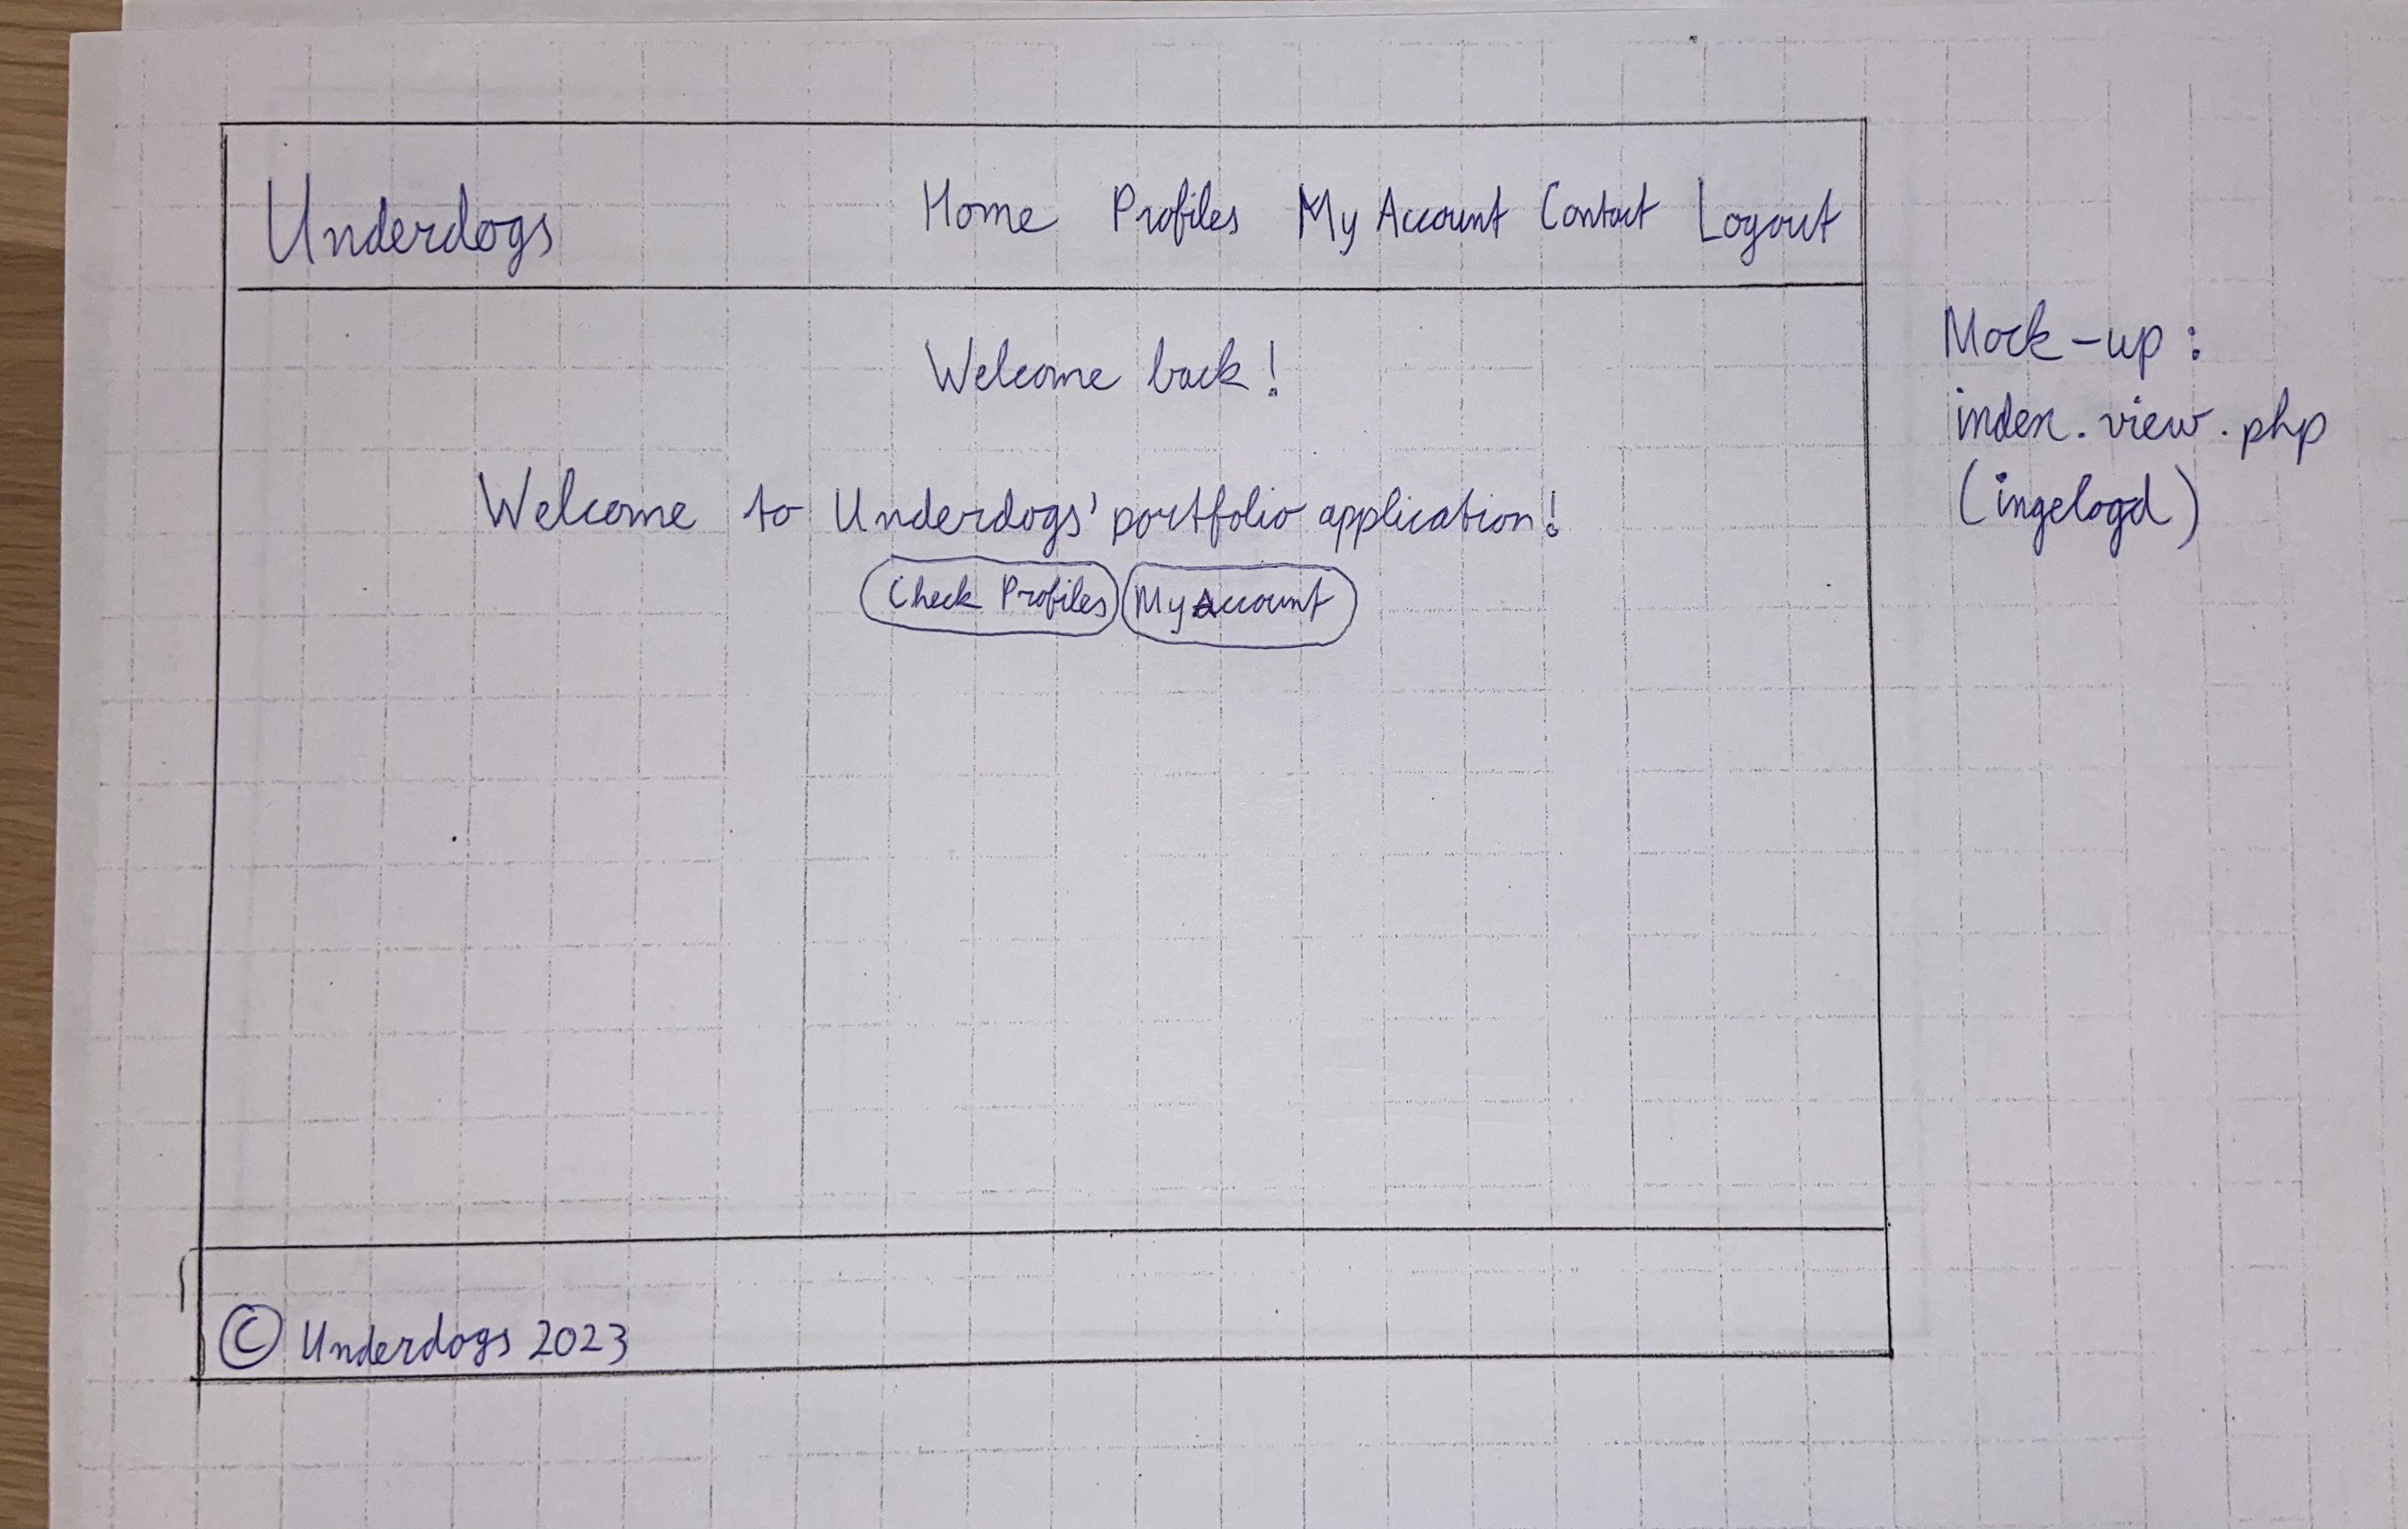 Underdogs Home Profiles My Account Contact Logout
Welcome back!
Welcome to Underdogs' portfolio application!
Check Profiles My Account
© Underdogs 2023
Mock-up:
index.view.php
(ingelogd)